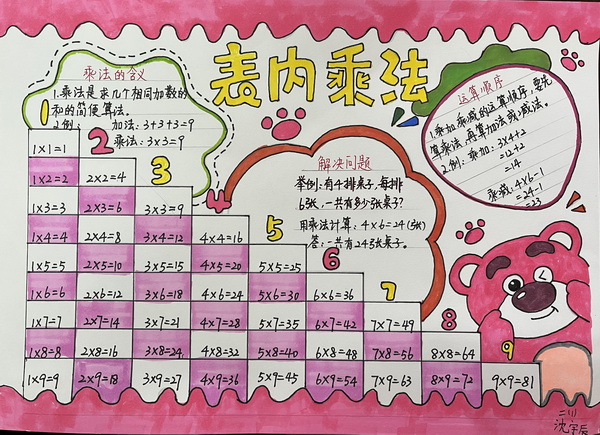 表内乘法
乘法的含义
1.乘法是求几个相同加数的
和的简便算法。
2.例: 加法:3+3+3=9
乘法:3×3=9
运算顺序
1.乘加和乘减的运算顺序,要先
算乘法,再算加法或减法。
2.例:乘加:3×4+2
=12+2
=14
乘减:4×6-1
=24-1
=23
解决问题
举例:有4排桌子,每排
6张,一共有多少张桌子?
用乘法计算:4×6=24(张)
答:一共有24张桌子。
1
1×1=1
2
1×2=2 2×2=4
3
1×3=3 2×3=6 3×3=9
4
1×4=4 2×4=8 3×4=12 4×4=16
5
1×5=5 2×5=10 3×5=15 4×5=20 5×5=25
6
1×6=6 2×6=12 3×6=18 4×6=24 5×6=30 6×6=36
7
1×7=7 2×7=14 3×7=21 4×7=28 5×7=35 6×7=42 7×7=49
8
1×8=8 2×8=16 3×8=24 4×8=32 5×8=40 6×8=48 7×8=56 8×8=64
9
1×9=9 2×9=18 3×9=27 4×9=36 5×9=45 6×9=54 7×9=63 8×9=72 9×9=81
二(1)
沈宇辰